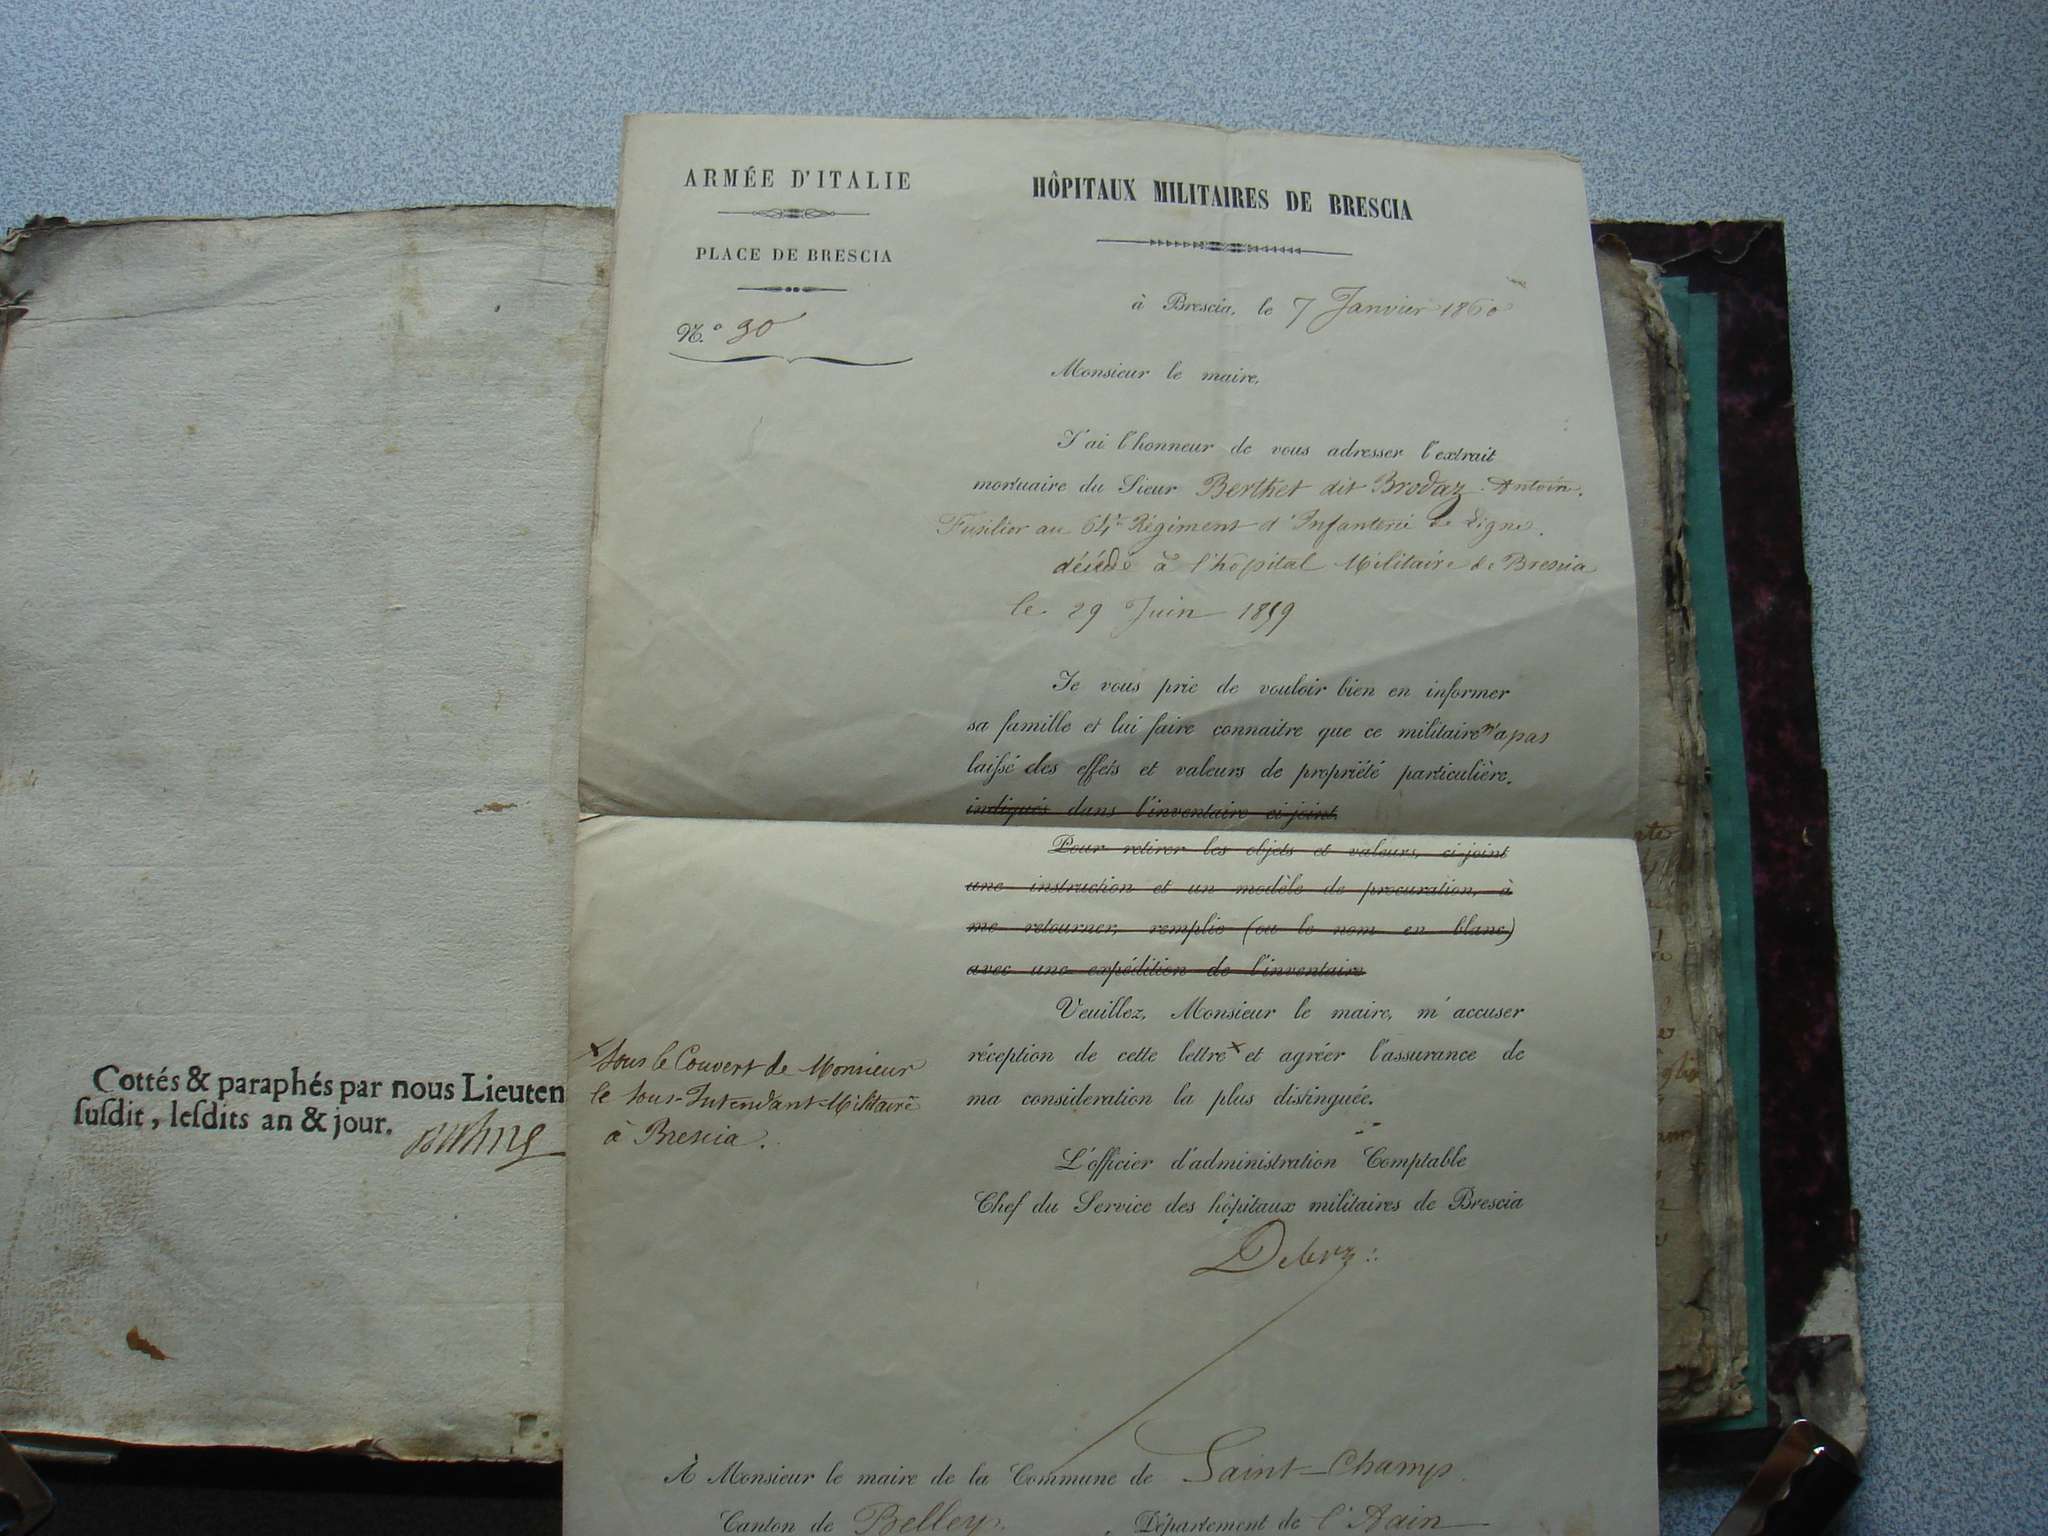 ARMÉE D'ITALIE
PLACE DE BRESCIA
N.° 30
HÔPITAUX MILITAIRES DE BRESCIA
à Brescia, le 7 Janvier 1860
Monsieur le maire,
J'ai l'honneur de vous adresser l'extrait
mortuaire du Sieur Berthet dit Brodaz Antoin.
Fusilier au 64e Régiment d'Infanterie de Ligne.
décédé à l'hôpital Militaire de Brescia
le 29 Juin 1859
Je vous prie de vouloir bien en informer
sa famille et lui faire connaitre que ce militaire n'a pas
laissé des effets et valeurs de propriété particulière.
indiqués dans l'inventaire ci-joint.
Pour retirer les objets et valeurs, ci-joint
une instruction et un modèle de procuration, à
me retourner, remplie (ou le nom en blanc)
avec une expédition de l'inventaire
Veuillez, Monsieur le maire, m'accuser
réception de cette lettre x et agréer l'assurance de
ma consideration la plus distinguée.
x sous le Couvert de Monsieur
le Sous-Intendant Militaire
à Brescia.
L'officier d'administration Comptable
Chef du Service des hôpitaux militaires de Brescia
À Monsieur le maire de la Commune de Saint-Champ
Canton de Belley, Département de l'Aain
Cottés & paraphés par nous Lieuten
susdit, lesdits an & jour.